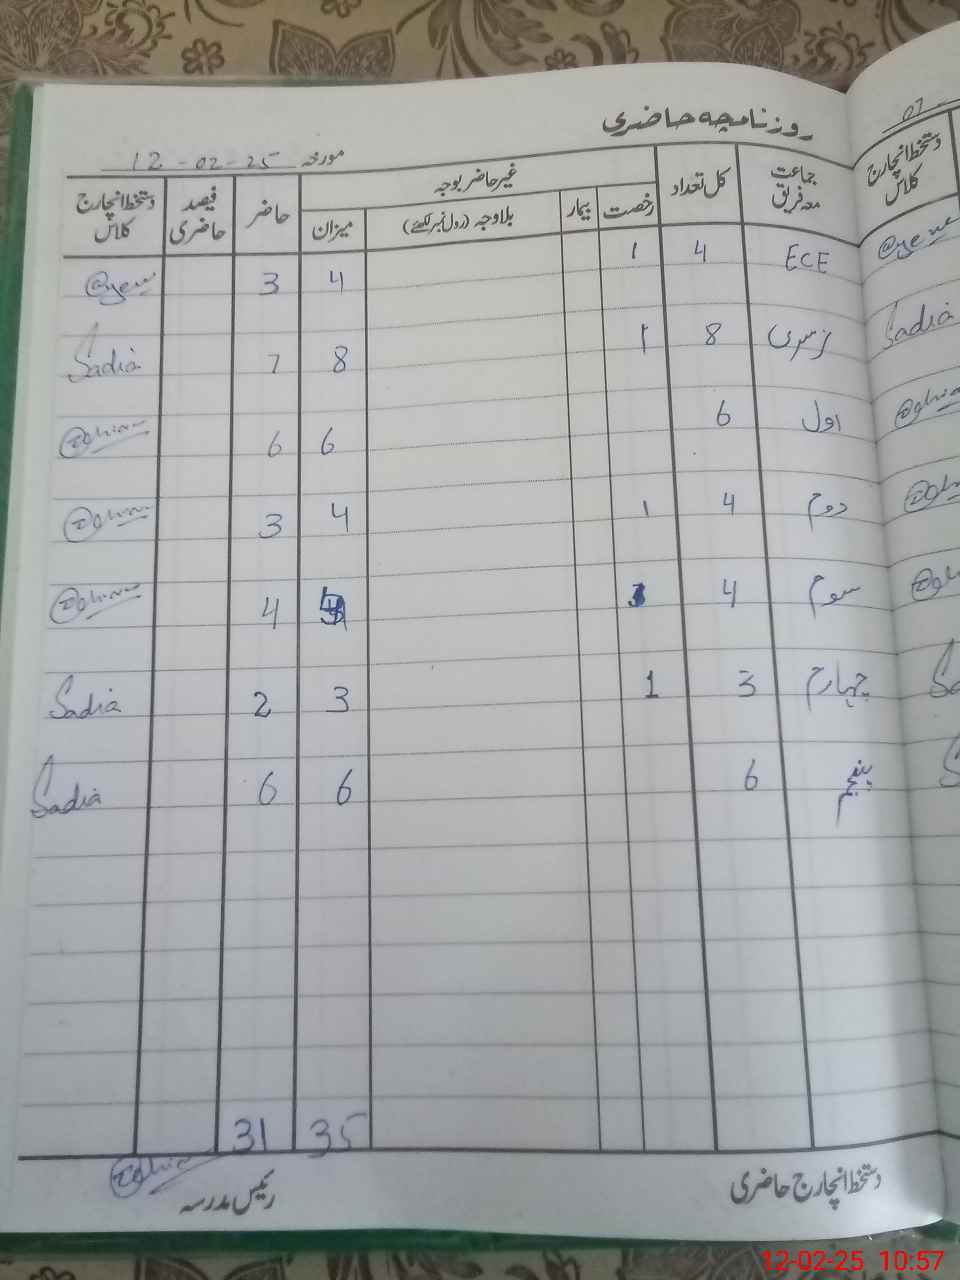 روزنامچہ حاضری
07
مورخہ 12-02-25
دستخط انچارج کلاس
جماعت معہ فریق کل تعداد غیر حاضر بوجہ حاضر فیصد حاضری دستخط انچارج کلاس
رخصت بیمار بلاوجہ (رول نمبر لکھئے) میزان
ECE 4 1 4 3
نرسری 8 1 8 7 Sadia
Sadia
اول 6 6 6
دوم 4 1 4 3
سوم 4 4
چہارم 3 1 3 2 Sadia
پنجم 6 6 6 Sadia
35 31
دستخط انچارج حاضری
رئیس مدرسہ
12-02-25 10:57